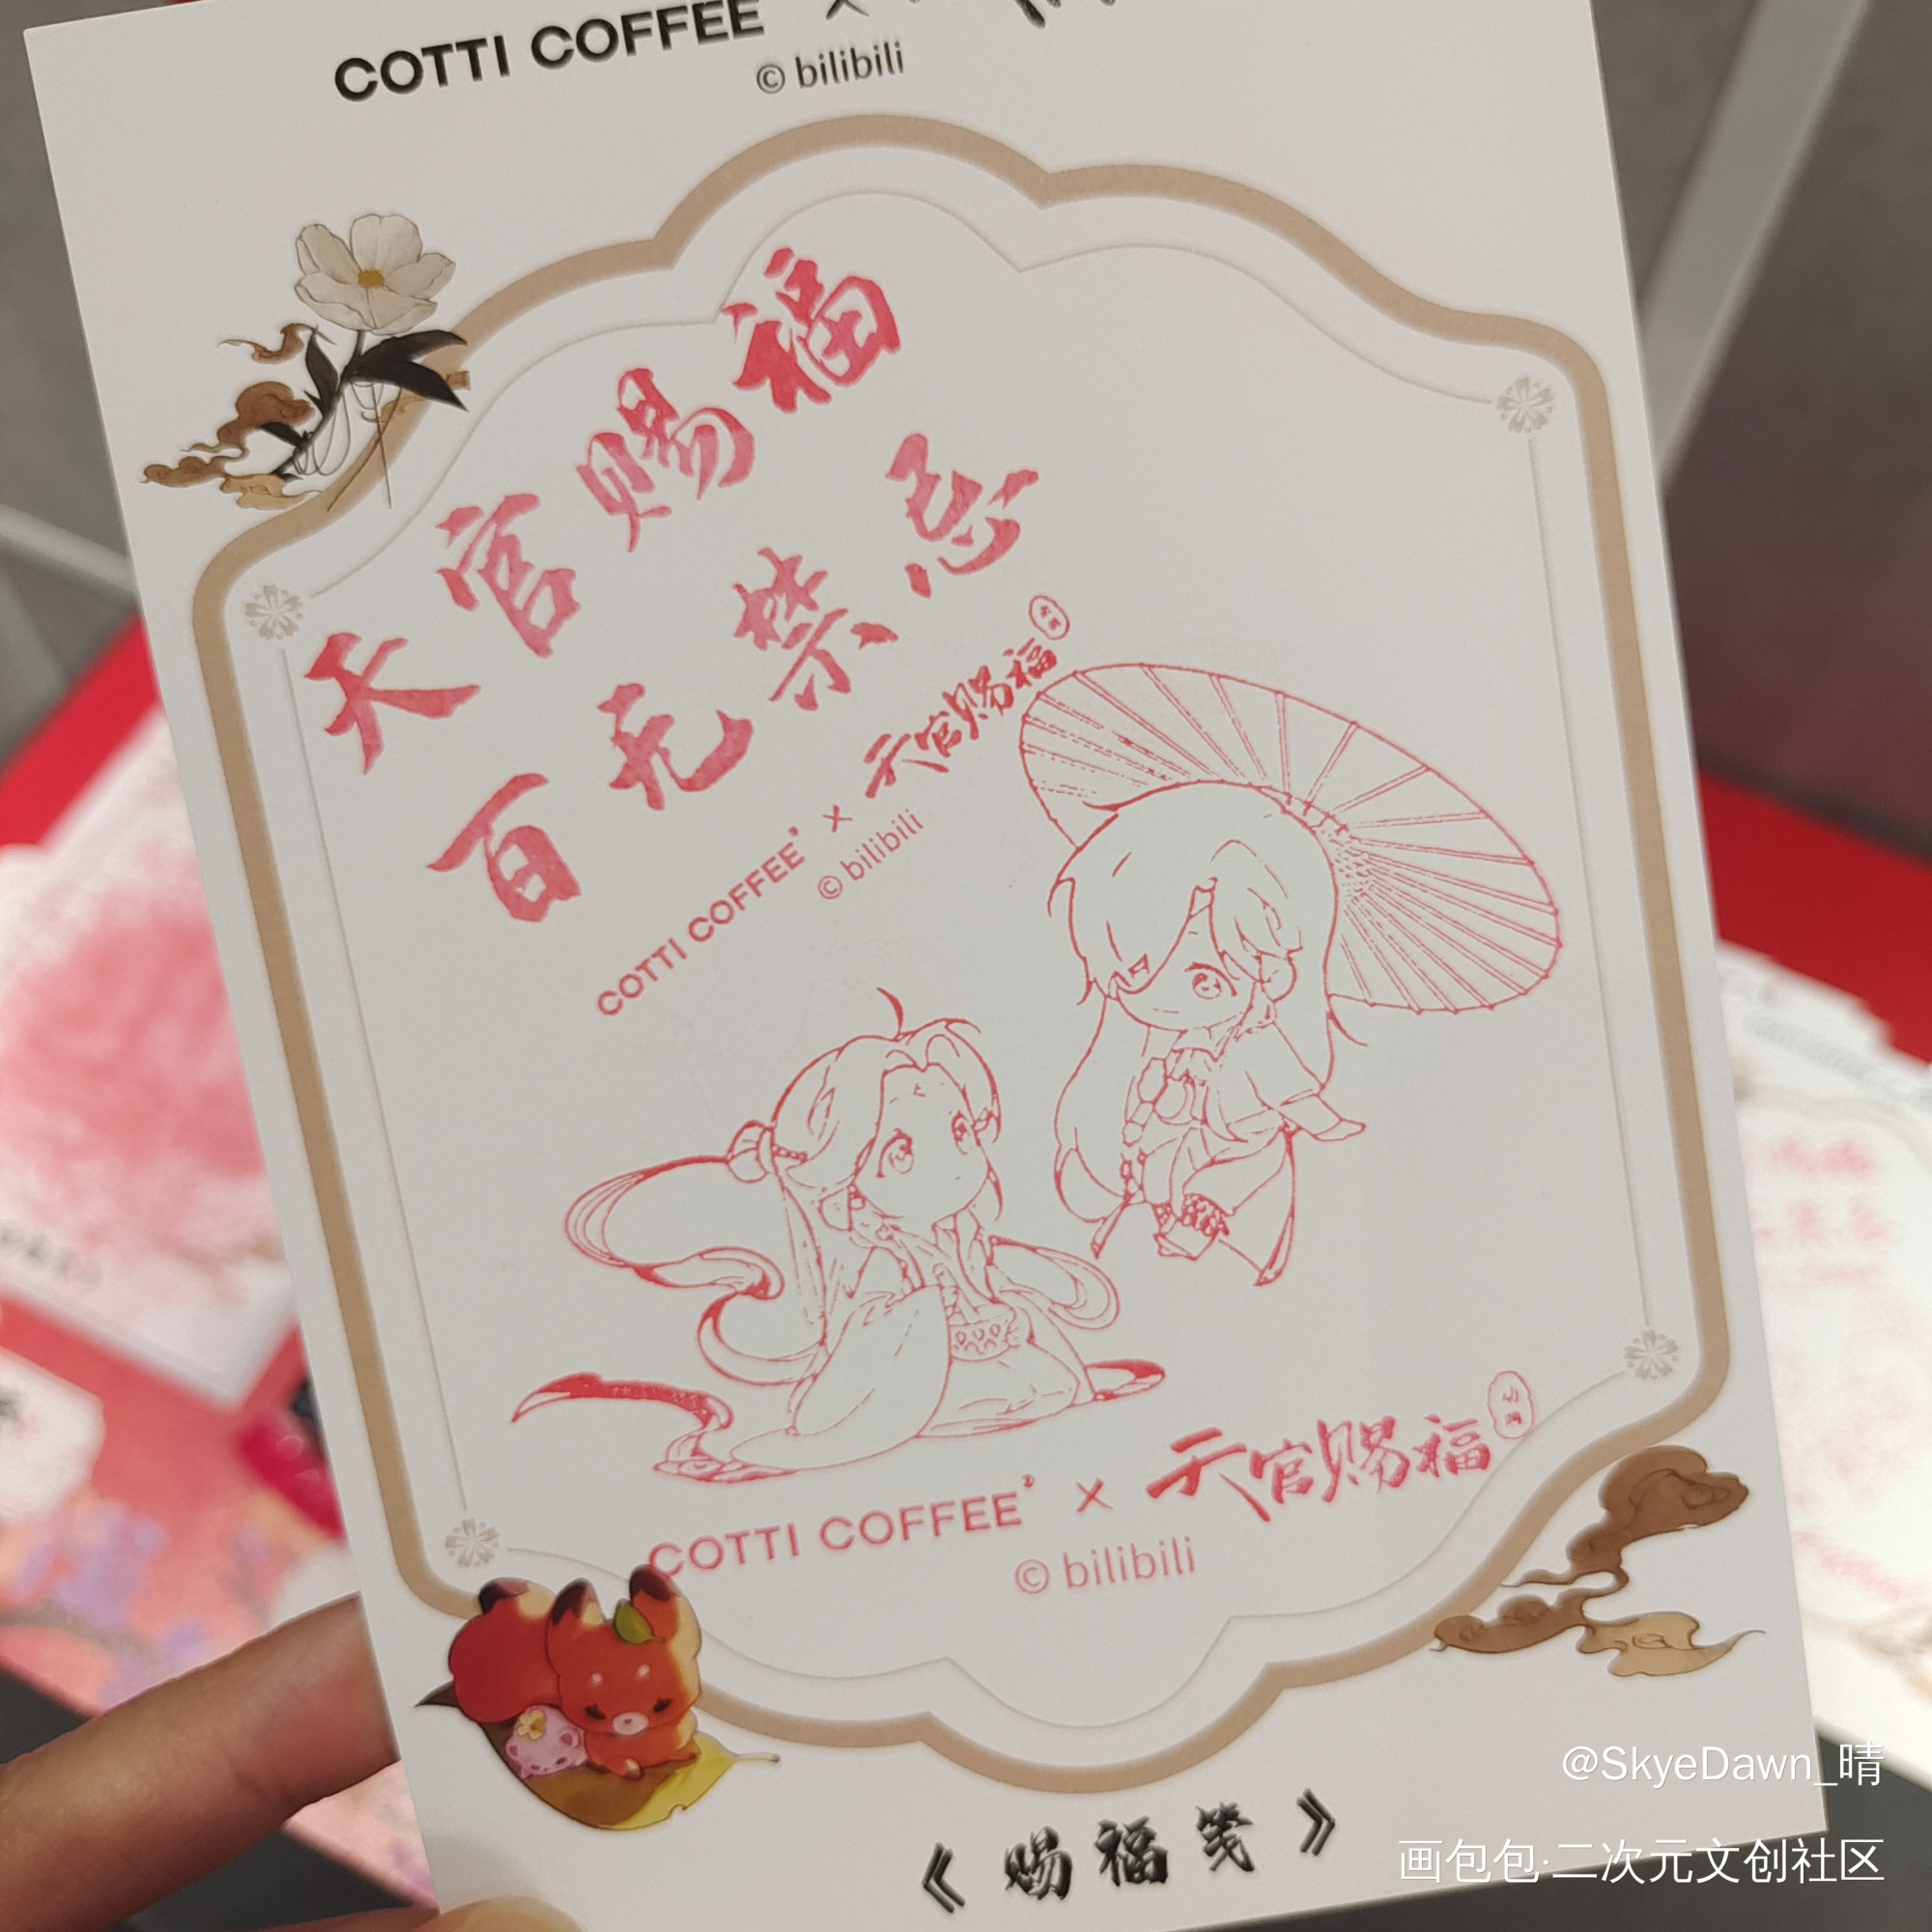 COTTI COFFEE ×
© bilibili
天官赐福
百无禁忌
COTTI COFFEE × 天官赐福
© bilibili
COTTI COFFEE × 天官赐福
© bilibili
《赐福笺》
@SkyeDawn_晴
画包包·二次元文创社区